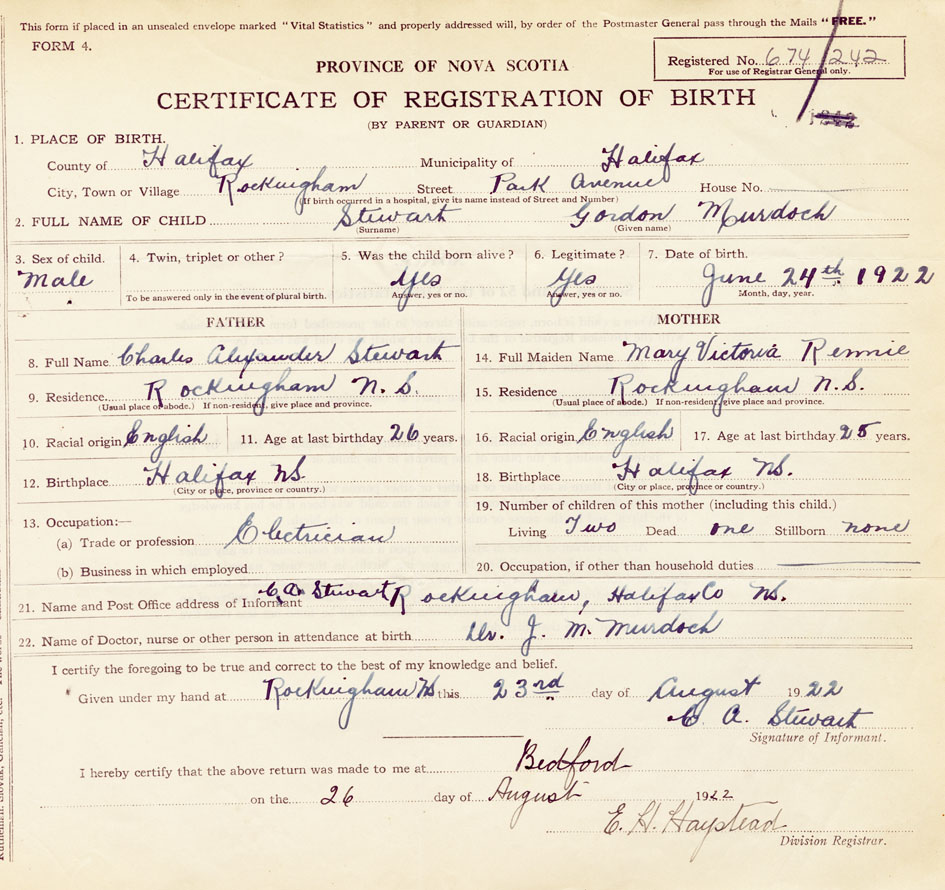 This form if placed in an unsealed envelope marked "Vital Statistics" and properly addressed will, by order of the Postmaster General pass through the Mails "FREE."
FORM 4.
Registered No. 674 242
For use of Registrar General only.
PROVINCE OF NOVA SCOTIA
CERTIFICATE OF REGISTRATION OF BIRTH
(BY PARENT OR GUARDIAN)
1. PLACE OF BIRTH.
County of Halifax Municipality of Halifax
City, Town or Village Rockingham Street Park Avenue House No.
(If birth occurred in a hospital, give its name instead of Street and Number)
2. FULL NAME OF CHILD Stewart Gordon Murdoch
(Surname) (Given name)
3. Sex of child. 4. Twin, triplet or other? 5. Was the child born alive? 6. Legitimate? 7. Date of birth.
Male Yes Yes June 24th 1922
To be answered only in the event of plural birth. Answer, yes or no. Answer, yes or no. Month, day, year.
FATHER
8. Full Name Charles Alexander Stewart
9. Residence Rockingham N.S.
(Usual place of abode.) If non-resident, give place and province.
10. Racial origin English 11. Age at last birthday 26 years.
12. Birthplace Halifax NS.
(City or place, province or country.)
13. Occupation:—
(a) Trade or profession Electrician
(b) Business in which employed
MOTHER
14. Full Maiden Name Mary Victoria Rennie
15. Residence Rockingham N.S.
(Usual place of abode.) If non-resident, give place and province.
16. Racial origin English 17. Age at last birthday 25 years.
18. Birthplace Halifax NS.
(City or place, province or country.)
19. Number of children of this mother (including this child.)
Living Two Dead one Stillborn none
20. Occupation, if other than household duties
21. Name and Post Office address of Informant C. A. Stewart Rockingham, Halifax Co NS.
22. Name of Doctor, nurse or other person in attendance at birth Dr. J. M. Murdoch
I certify the foregoing to be true and correct to the best of my knowledge and belief.
Given under my hand at Rockingham NS this 23rd day of August 1922
C. A. Stewart
Signature of Informant.
I hereby certify that the above return was made to me at Bedford
on the 26 day of August 1922
E. H. Haystead
Division Registrar.